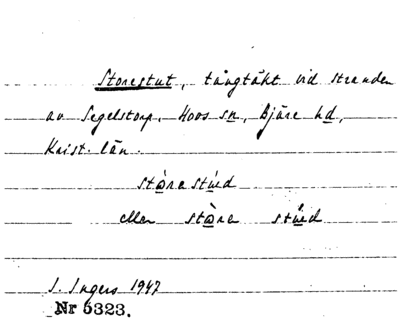 Storestut, tångtäkt vid stranden
av Segelstorp, Hovs sn, Bjäre hd,
Krist. län.
eller
I. Ingers 1947
Nr 5323.